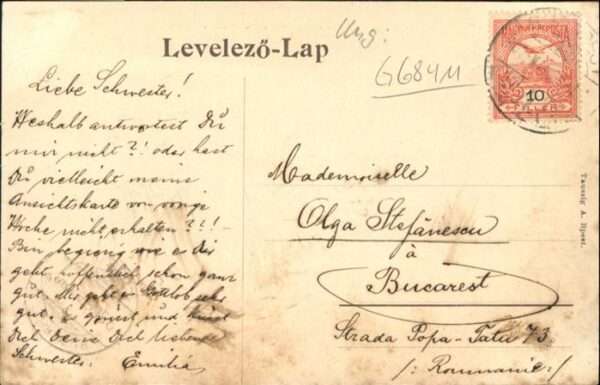 Levelező-Lap
Ung:
G684M
10
FILLÉR
Liebe Schwester!
Weshalb antwortest Dŭ
mir nicht?! oder hast
Dŭ vielleicht meine
Ansichtskarte von vorige
Woche nicht erhalten??!
Bin begierig wie es dir
geht, hoffentlich schon ganz
gut. Mir geht es Gottlob sehr
gut. Es grüsst und küsst
Dich Deine Dich liebende
Schwester Emilia
Mademoiselle
Olga Stefănescu
à
Bucarest
Strada Popa-Tatu 73.
/: Roumanie:/
Taussig A. Bpest.